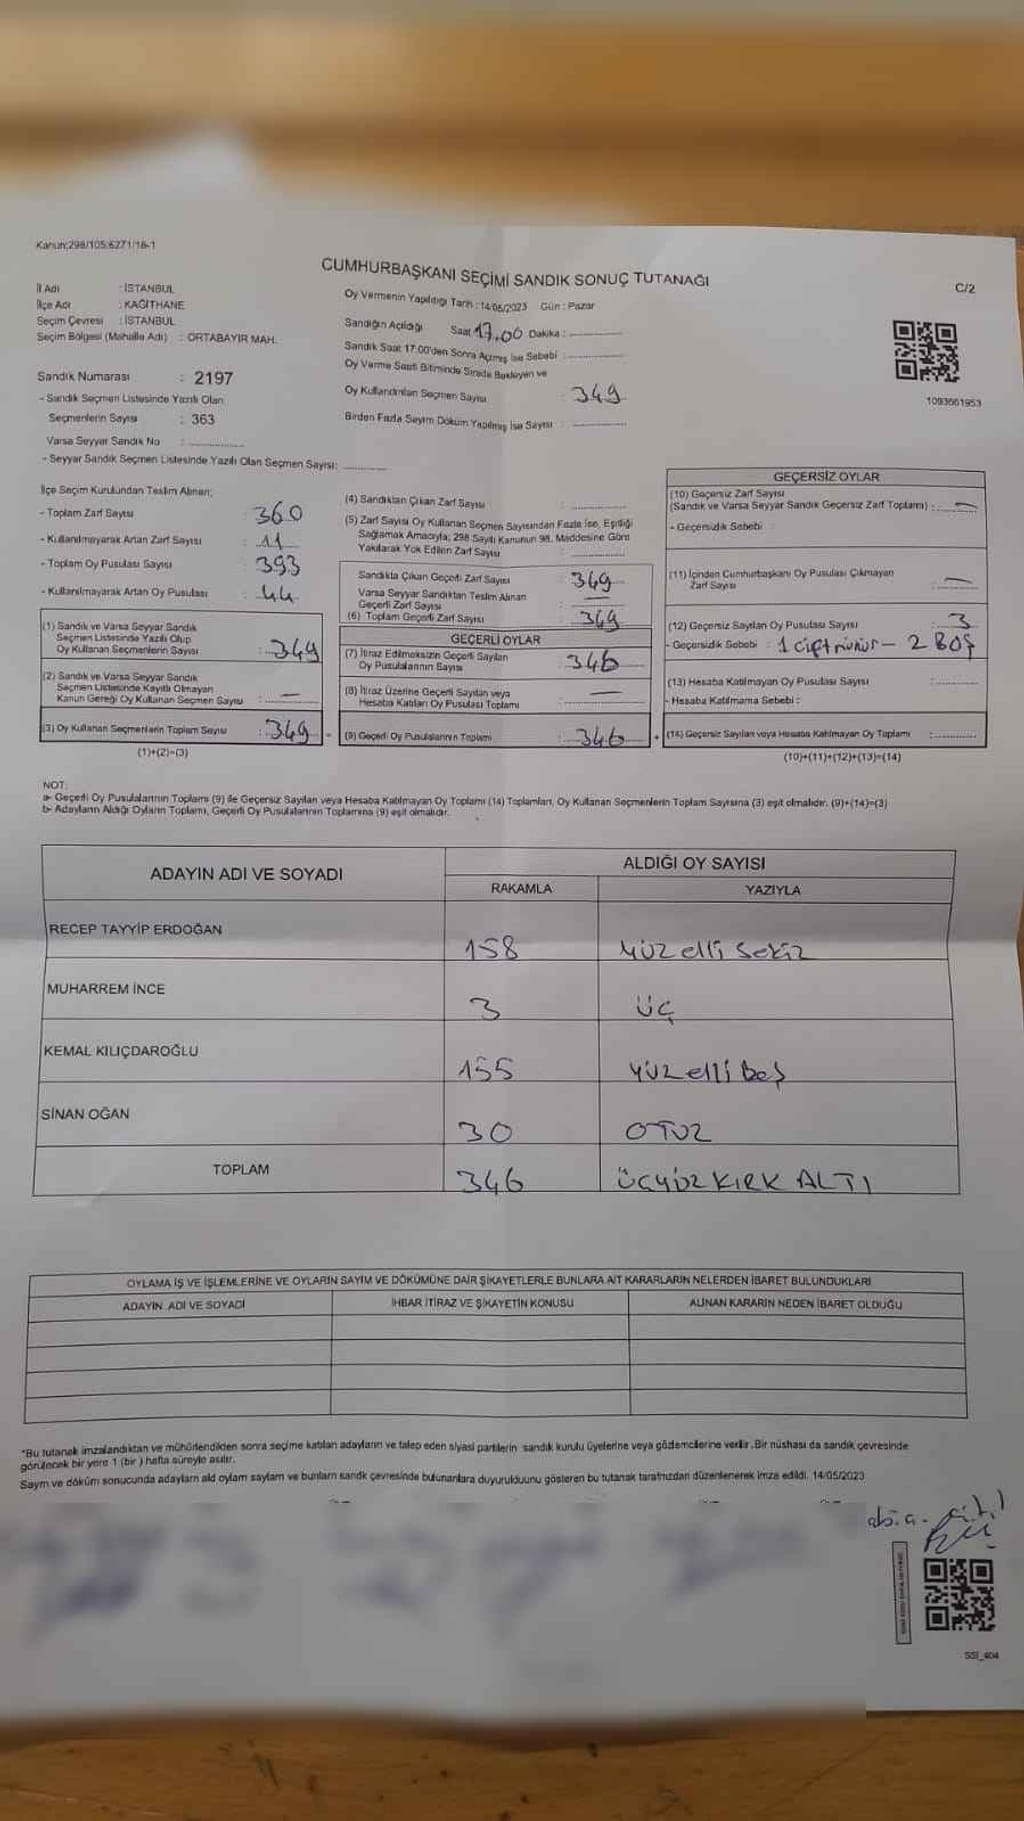 Kanun;298/105;6271/18-1
CUMHURBAŞKANI SEÇİMİ SANDIK SONUÇ TUTANAĞI
C/2
İl Adı : İSTANBUL
İlçe Adı : KAĞITHANE
Seçim Çevresi : İSTANBUL
Seçim Bölgesi (Mahalle Adı) : ORTABAYIR MAH.
Oy Vermenin Yapıldığı Tarih : 14/05/2023 Gün : Pazar
Sandığın Açıldığı Saat 17.00 Dakika : ............
Sandık Saat 17:00'den Sonra Açılmış İse Sebebi : ............
Oy Verme Saati Bitiminde Sırada Bekleyen ve
Oy Kullandırılan Seçmen Sayısı : 349
Birden Fazla Sayım Döküm Yapılmış İse Sayısı : ............
1093661953
Sandık Numarası : 2197
- Sandık Seçmen Listesinde Yazılı Olan
Seçmenlerin Sayısı : 363
Varsa Seyyar Sandık No : ............
- Seyyar Sandık Seçmen Listesinde Yazılı Olan Seçmen Sayısı: ............
İlçe Seçim Kurulundan Teslim Alınan;
- Toplam Zarf Sayısı : 360
- Kullanılmayarak Artan Zarf Sayısı : 11
- Toplam Oy Pusulası Sayısı : 393
- Kullanılmayarak Artan Oy Pusulası : 44
(1) Sandık ve Varsa Seyyar Sandık
Seçmen Listesinde Yazılı Olup
Oy Kullanan Seçmenlerin Sayısı : 349
(2) Sandık ve Varsa Seyyar Sandık
Seçmen Listesinde Kayıtlı Olmayan
Kanun Gereği Oy Kullanan Seçmen Sayısı : —
(3) Oy Kullanan Seçmenlerin Toplam Sayısı : 349
(1)+(2)=(3)
(4) Sandıktan Çıkan Zarf Sayısı : ............
(5) Zarf Sayısı Oy Kullanan Seçmen Sayısından Fazla İse, Eşitliği
Sağlamak Amacıyla; 298 Sayılı Kanunun 98. Maddesine Göre
Yakılarak Yok Edilen Zarf Sayısı : ............
Sandıkta Çıkan Geçerli Zarf Sayısı : 349
Varsa Seyyar Sandıktan Teslim Alınan
Geçerli Zarf Sayısı : —
(6) Toplam Geçerli Zarf Sayısı : 349
GEÇERLİ OYLAR
(7) İtiraz Edilmeksizin Geçerli Sayılan
Oy Pusulalarının Sayısı : 346
(8) İtiraz Üzerine Geçerli Sayılan veya
Hesaba Katılan Oy Pusulası Toplamı : —
(9) Geçerli Oy Pusulalarının Toplamı : 346
GEÇERSİZ OYLAR
(10) Geçersiz Zarf Sayısı
(Sandık ve Varsa Seyyar Sandık Geçersiz Zarf Toplamı) : —
- Geçersizlik Sebebi :
(11) İçinden Cumhurbaşkanı Oy Pusulası Çıkmayan
Zarf Sayısı : —
(12) Geçersiz Sayılan Oy Pusulası Sayısı : 3
- Geçersizlik Sebebi : 1 çift mühür — 2 BOŞ
(13) Hesaba Katılmayan Oy Pusulası Sayısı : ............
- Hesaba Katılmama Sebebi :
(14) Geçersiz Sayılan veya Hesaba Katılmayan Oy Toplamı : ............
(10)+(11)+(12)+(13)=(14)
NOT:
a- Geçerli Oy Pusulalarının Toplamı (9) ile Geçersiz Sayılan veya Hesaba Katılmayan Oy Toplamı (14) Toplamları, Oy Kullanan Seçmenlerin Toplam Sayısına (3) eşit olmalıdır. (9)+(14)=(3)
b- Adayların Aldığı Oyların Toplamı, Geçerli Oy Pusulalarının Toplamına (9) eşit olmalıdır.
ADAYIN ADI VE SOYADI
ALDIĞI OY SAYISI
RAKAMLA YAZIYLA
RECEP TAYYİP ERDOĞAN 158 yüz elli sekiz
MUHARREM İNCE 3 üç
KEMAL KILIÇDAROĞLU 155 yüz elli beş
SİNAN OĞAN 30 OTUZ
TOPLAM 346 ÜÇYÜZ KIRK ALTI
OYLAMA İŞ VE İŞLEMLERİNE VE OYLARIN SAYIM VE DÖKÜMÜNE DAİR ŞİKAYETLERLE BUNLARA AİT KARARLARIN NELERDEN İBARET BULUNDUKLARI
ADAYIN ADI VE SOYADI İHBAR İTİRAZ VE ŞİKAYETİN KONUSU ALINAN KARARIN NEDEN İBARET OLDUĞU
*Bu tutanak imzalandıktan ve mühürlendikten sonra seçime katılan adayların ve talep eden siyasi partilerin sandık kurulu üyelerine veya gözlemcilerine verilir. Bir nüshası da sandık çevresinde
görülecek bir yere 1 (bir ) hafta süreyle asılır.
Sayım ve döküm sonucunda adayların aldı oyların sayları ve bunların sandık çevresinde bulunanlara duyurulduunu gösteren bu tutanak tarafımızdan düzenlenerek imza edildi. 14/05/2023
SSI_404